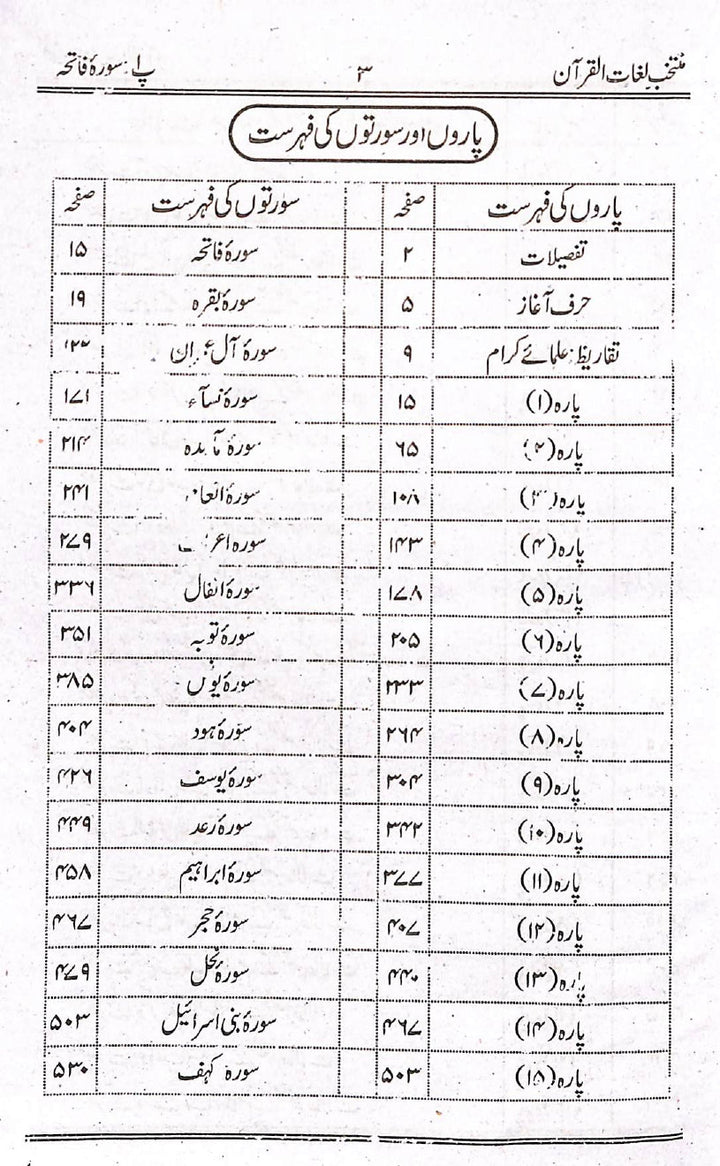 منتخب لغات القرآن ۳ پ۱: سورۂ فاتحہ
پاروں اور سورتوں کی فہرست
پاروں کی فہرست صفحہ سورتوں کی فہرست صفحہ
تفصیلات ۲ سورۂ فاتحہ ۱۵
حرف آغاز ۵ سورۂ بقرہ ۱۹
تقاریظ: علمائے کرام ۹ سورۂ آل عمران
پارہ (۱) ۱۵ سورۂ نساء ۱۷۱
پارہ (۲) ۶۵ سورۂ مائدہ ۲۱۴
پارہ (۳) ۱۰۸ سورۂ انعام ۲۴۱
پارہ (۴) ۱۴۳ سورۂ اعراف ۲۷۹
پارہ (۵) ۱۷۸ سورۂ انفال ۳۳۶
پارہ (۶) ۲۰۵ سورۂ توبہ ۳۵۱
پارہ (۷) ۲۳۳ سورۂ یونس ۳۸۵
پارہ (۸) ۲۶۴ سورۂ ہود ۴۰۴
پارہ (۹) ۳۰۴ سورۂ یوسف ۴۲۶
پارہ (۱۰) ۳۴۲ سورۂ رعد ۴۴۹
پارہ (۱۱) ۳۷۷ سورۂ ابراہیم ۴۵۸
پارہ (۱۲) ۴۰۷ سورۂ حجر ۴۶۷
پارہ (۱۳) ۴۴۰ سورۂ نحل ۴۷۹
پارہ (۱۴) ۴۶۷ سورۂ بنی اسرائیل ۵۰۳
پارہ (۱۵) ۵۰۳ سورۂ کہف ۵۳۰